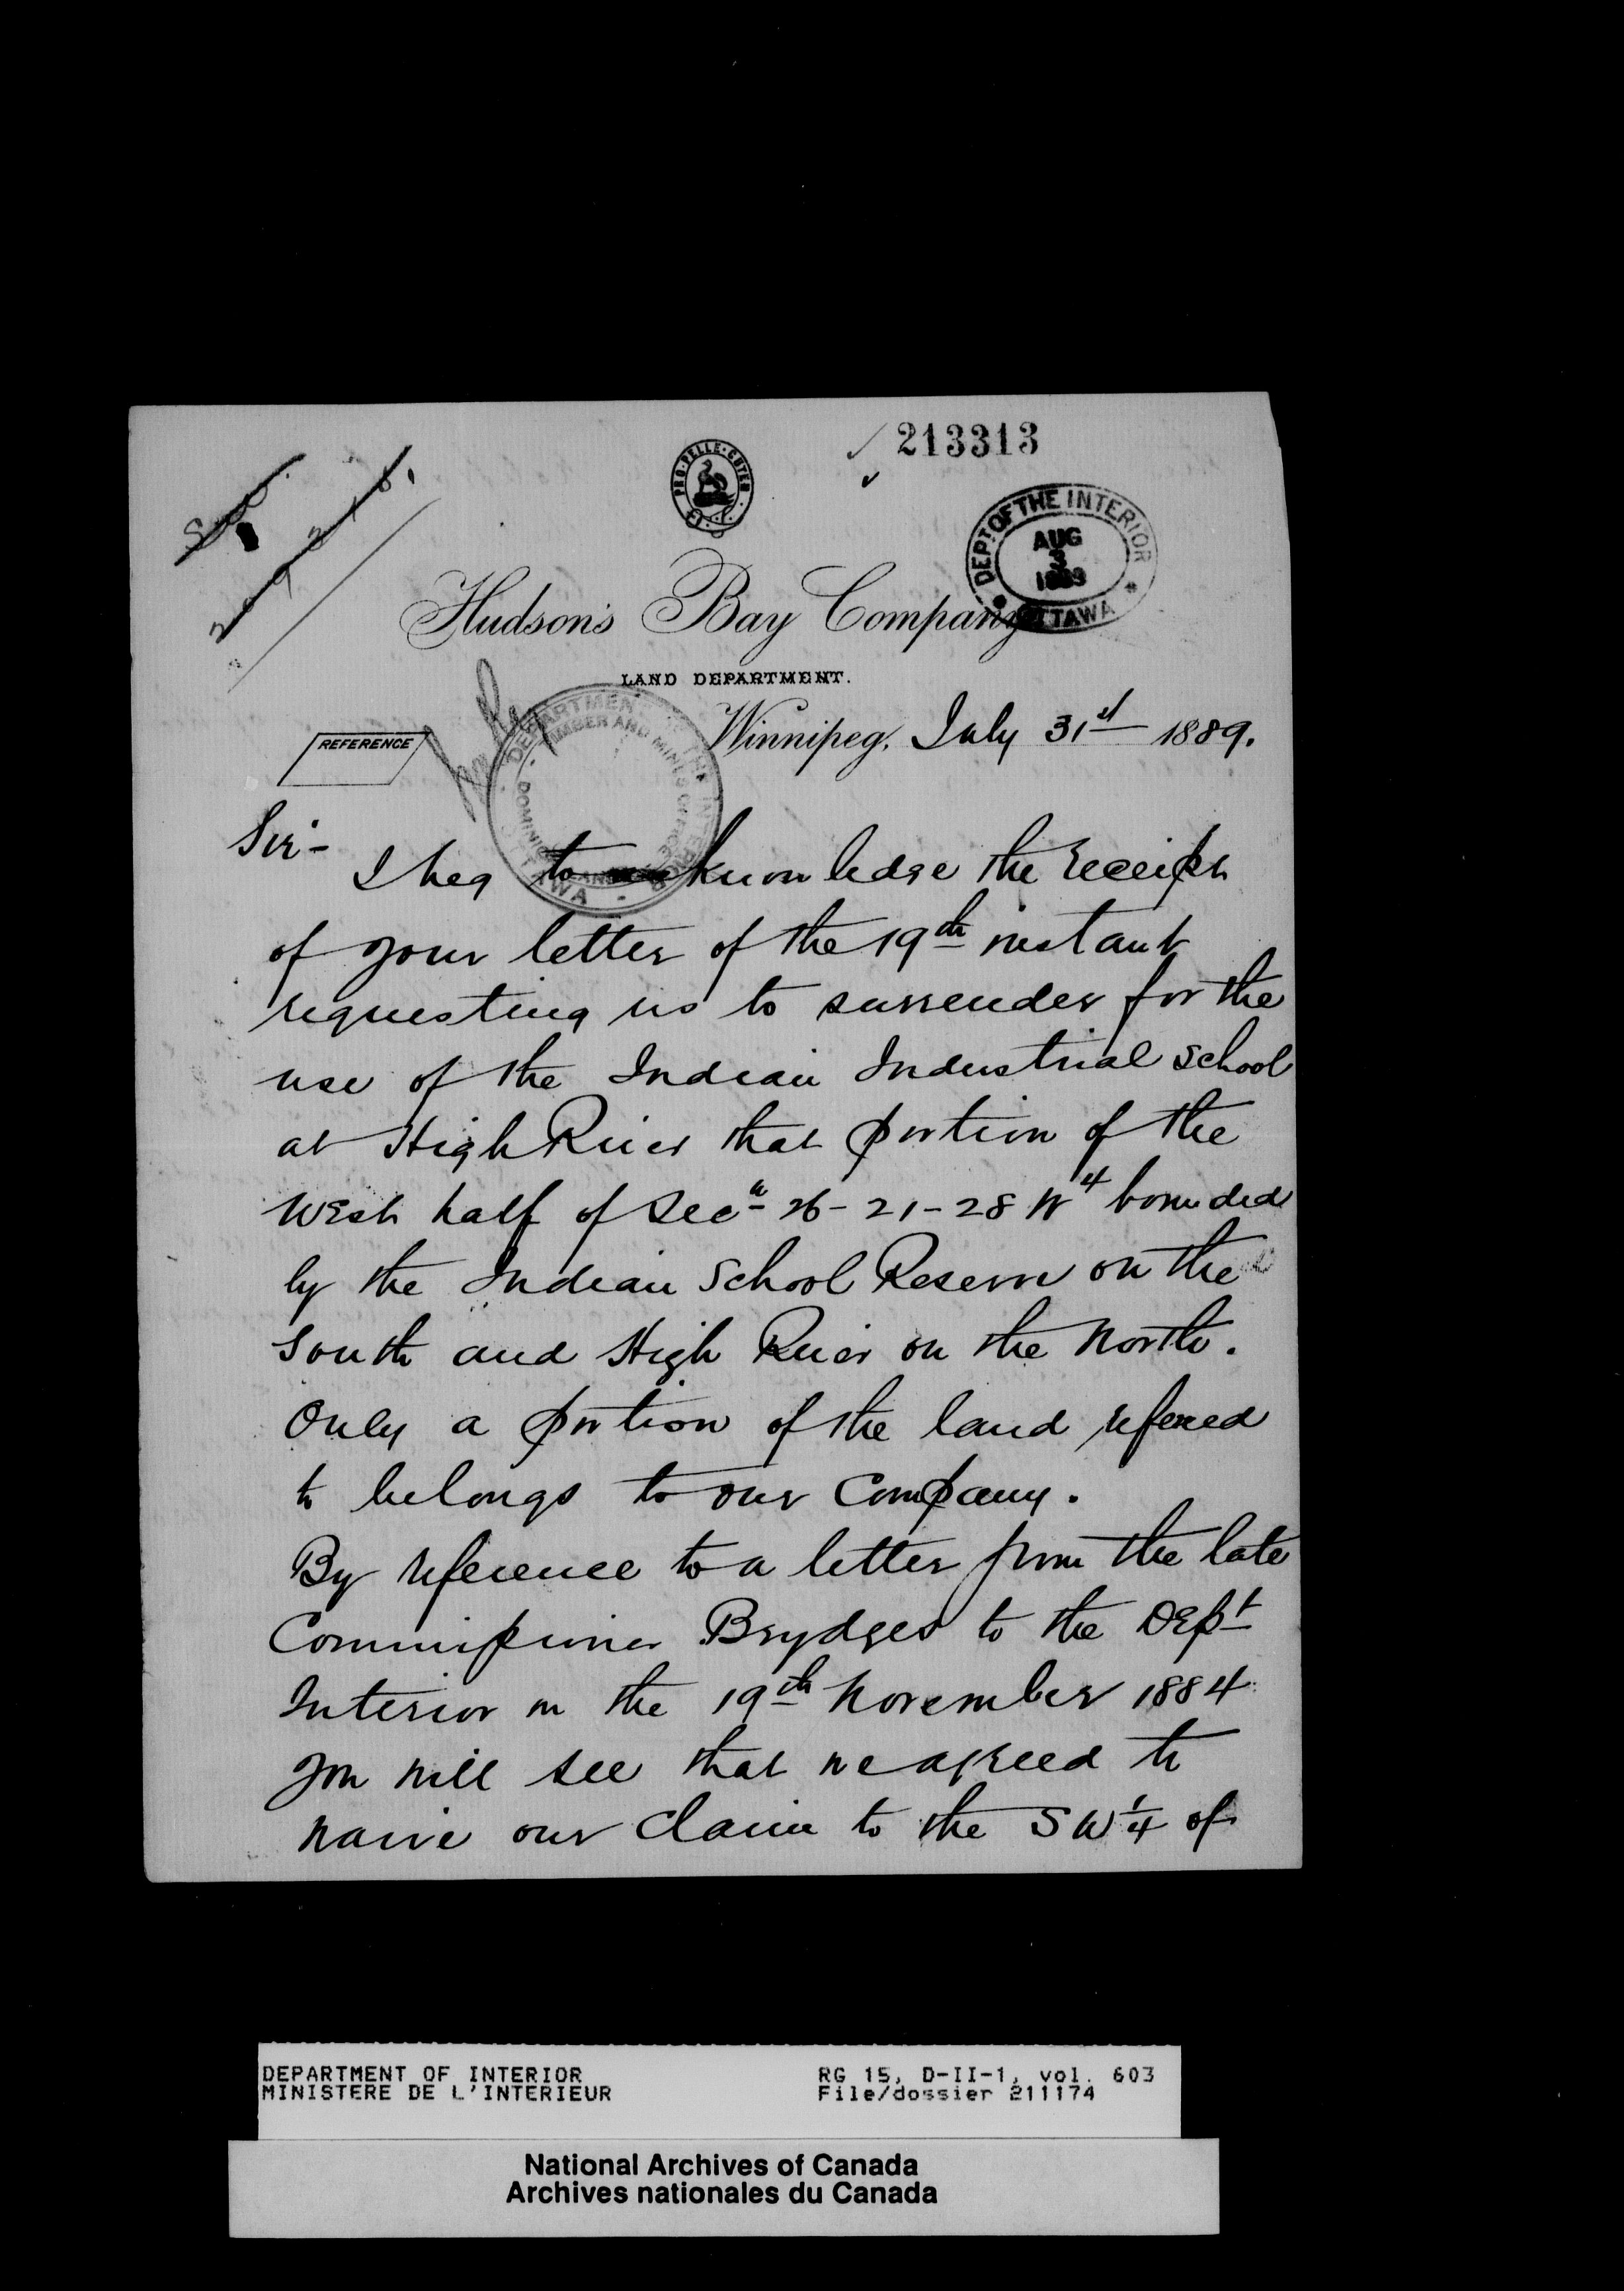 213313
PRO·PELLE·CUTEM
DEPT. OF THE INTERIOR
AUG
3
1889
OTTAWA
Hudson's Bay Company
LAND DEPARTMENT.
REFERENCE
Winnipeg, July 31st 1889.
DEPARTMENT OF THE INTERIOR
TIMBER AND MINES OFFICE
DOMINION LANDS
OTTAWA
Sir-
I beg to acknowledge the receipt
of your letter of the 19th instant
requesting us to surrender for the
use of the Indian Industrial School
at High River that portion of the
West half of Secn 26-21-28 W4 bounded
by the Indian School Reserve on the
South and High River on the North.
Only a portion of the land refered
to belongs to our Company.
By reference to a letter from the late
Commissioner Brydges to the Dept
Interior on the 19th November 1884
you will see that we agreed to
waive our claim to the SW 1/4 of
DEPARTMENT OF INTERIOR RG 15, D-II-1, vol. 603
MINISTERE DE L'INTERIEUR File/dossier 211174
National Archives of Canada
Archives nationales du Canada